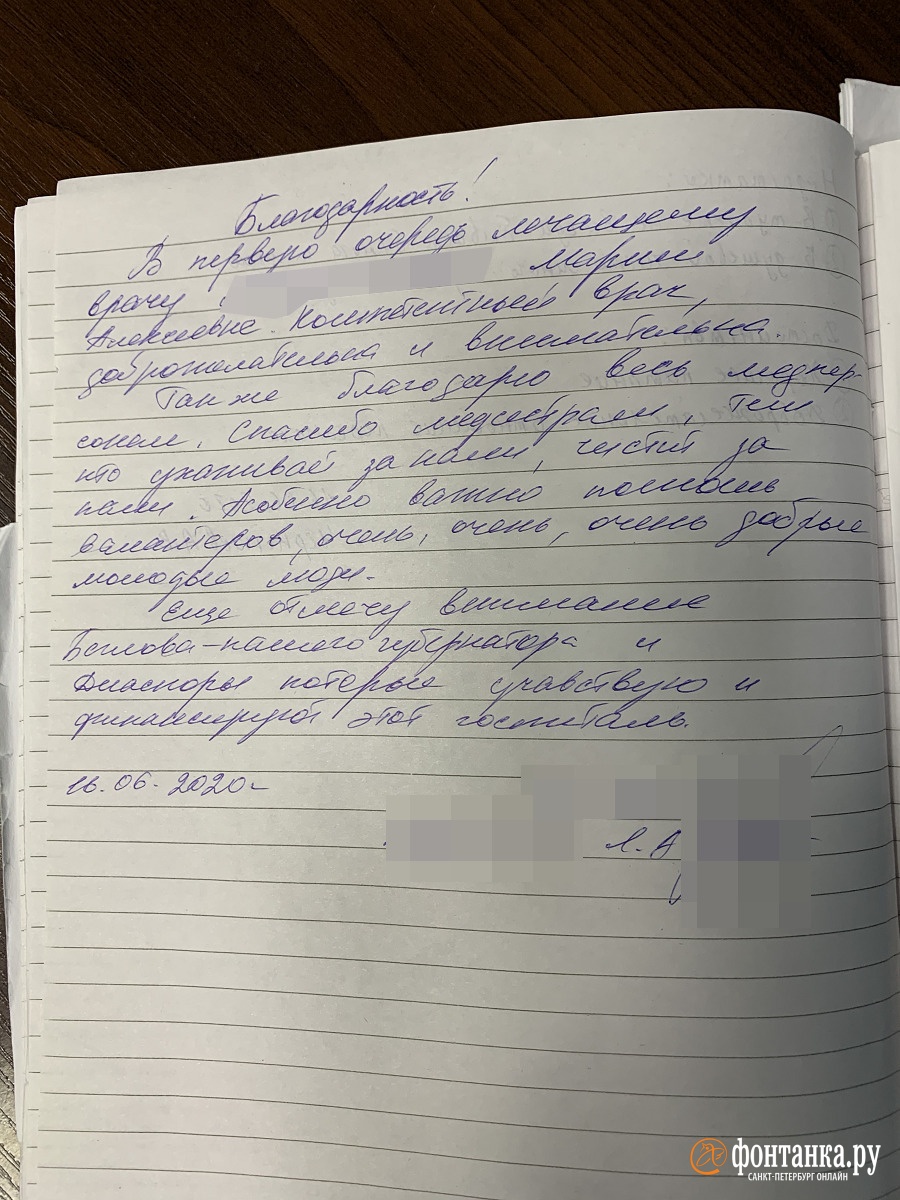 Благодарность!
В первую очередь лечащему
врачу Марине
Алексеевне. Компетентный врач,
доброжелательна и внимательна.
Также благодарю весь медпер-
сонал. Спасибо медсестрам, тем
кто ухаживает за нами, чистит за
нами. Особенно важно помошь
валантеров, очень, очень, очень добрые
молодые люди.
Еще отмечу внимание
Беглова-нашего губернатора и
Диаспоры которые учавствую и
финансируют этот госпиталь.
16.06.2020г
Л. А
фонтанка.ру
САНКТ-ПЕТЕРБУРГ ОНЛАЙН